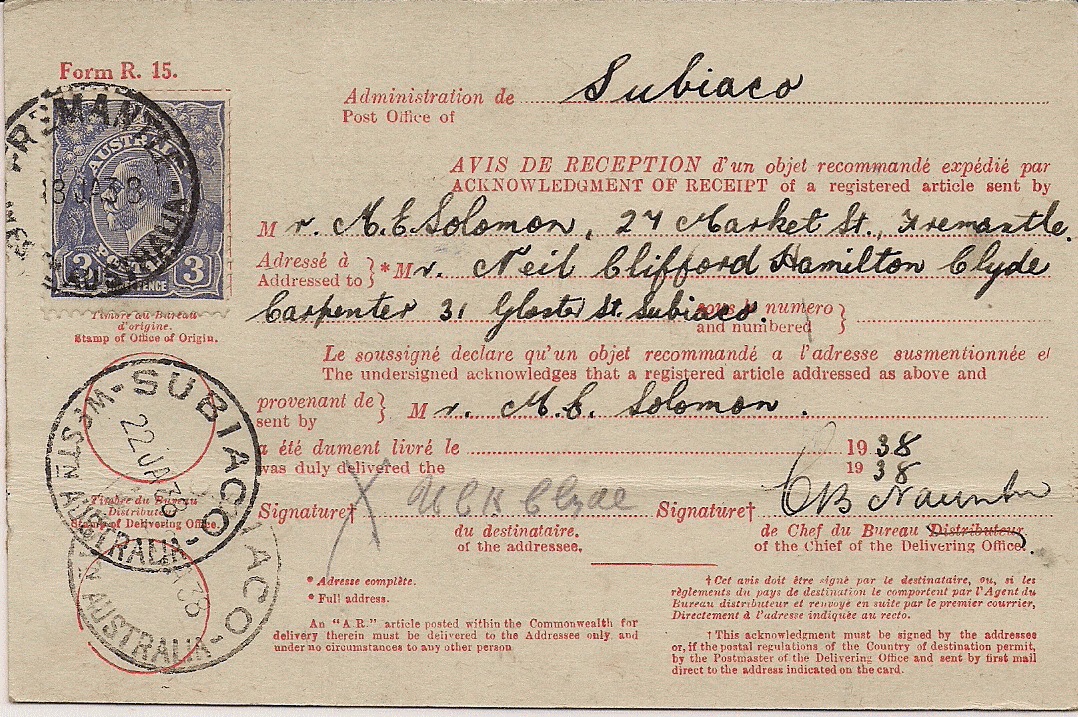 Form R. 15.
FREMANTLE
18 JA 38
AUSTRALIA
AUSTRALIA
3 PENCE 3
Administration de Subiaco
Post Office of
AVIS DE RECEPTION d'un objet recommandé expédié par
ACKNOWLEDGMENT OF RECEIPT of a registered article sent by
M r. M. E. Solomon, 27 Market St., Fremantle.
Adressé à
Addressed to } *Mr. Neil Clifford Hamilton Clyde
Carpenter 31 Gloster St. Subiaco. sous le numéro
and numbered }
Timbre au Bureau
d'origine.
Stamp of Office of Origin.
Le soussigné declare qu'un objet recommandé a l'adresse susmentionnée et
The undersigned acknowledges that a registered article addressed as above and
provenant de
sent by } M r. M. E. Solomon.
a été dument livré le 19 38
was duly delivered the 19 38
SUBIACO
22 JA 38
WESTN AUSTRALIA
Timbre du Bureau
Distributeur
Stamp of Delivering Office.
Signature† X N C H Clyde Signature†
du destinataire. de Chef du Bureau Distributeur
of the addressee. of the Chief of the Delivering Office.
IACO
JA 38
AUSTRALIA
* Adresse complète.
* Full address.
An "A R." article posted within the Commonwealth for
delivery therein must be delivered to the Addressee only, and
under no circumstances to any other person
† Cet avis doit être signé par le destinataire, ou, si les
règlements du pays de destination le comportent par l'Agent du
Bureau distributeur et renvoyé en suite par le premier courrier,
Directement à l'adresse indiquée au recto.
† This acknowledgment must be signed by the addressee
or, if the postal regulations of the Country of destination permit,
by the Postmaster of the Delivering Office and sent by first mail
direct to the address indicated on the card.